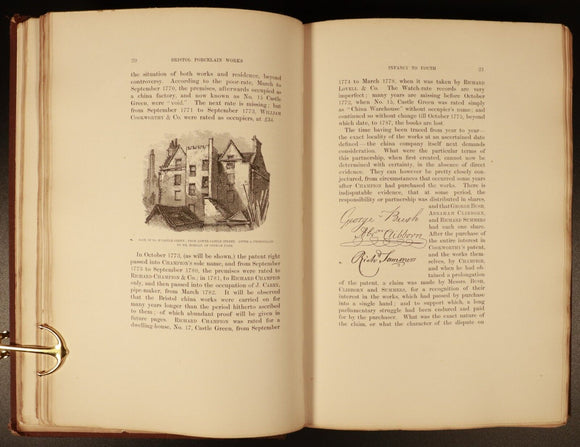 20 BRISTOL PORCELAIN WORKS
the situation of both works and residence, beyond
controversy. According to the poor-rate, March to
September 1770, the premises, afterwards occupied as
a china factory, and now known as No. 15 Castle
Green, were "void." The next rate is missing; but
from September 1771 to September 1772, WILLIAM
COOKWORTHY & Co. were rated as occupiers, at £34.
In October 1773, (as will be shown,) the patent right
passed into CHAMPION'S sole name, and from September
1773 to September 1780, the premises were rated to
RICHARD CHAMPION & Co.; in 1781, to RICHARD CHAMPION
only, and then passed into the occupation of J. CAREY,
pipe-maker, from March 1782. It will be observed
that the Bristol china works were carried on for
many years longer than the period hitherto ascribed
to them; of which abundant proof will be given in
future pages. RICHARD CHAMPION was rated for a
dwelling-house, No. 17, Castle Green, from September
INFANCY TO YOUTH 21
1774 to March 1778, when it was taken by RICHARD
LOVELL & Co. The Watch-rate records are very
imperfect; many years are missing before October
1772, when No. 15, Castle Green was rated simply
as "China Warehouse" without occupier's name; and
continued so without change till October 1775, beyond
which date, to 1787, the books are lost.
The time having been traced from year to year—
the exact locality of the works at an ascertained date
defined—the china company itself next demands
consideration. What were the particular terms of
this partnership, when first created, cannot now be
determined with certainty, in the absence of direct
evidence. They can however be pretty closely con-
jectured, from circumstances that occurred some years
after CHAMPION had purchased the works. There is
indisputable evidence, that at some period, the
responsibility or partnership was distributed in shares,
and that GEORGE BUSH,
ABRAHAM CLIBBORN,
and RICHARD SUMMERS
had each one share.
After the purchase of
the entire interest in
COOKWORTHY'S patent,
and the works them-
selves, by CHAMPION,
and when he had ob-
tained a prolongation
George Bush
Abm Clibborn
Richd Summers
of the patent, a claim was made by Messrs. BUSH,
CLIBORN and SUMMERS, for a recognition of their
interest in the works, which had passed by purchase
into a single hand; and to support which a long
parliamentary struggle had been endured and paid
for by the purchaser. What was the exact nature of
the claim, or what the character of the dispute on